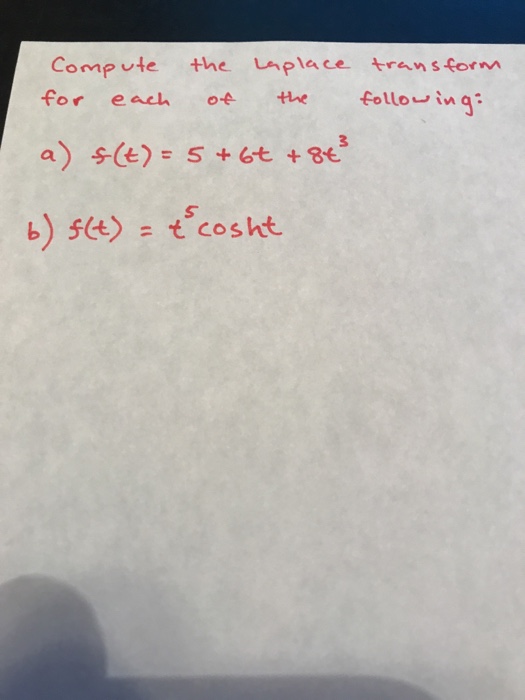 Compute the Laplace transform
for each of the following:
a) f(t) = 5 + 6t + 8t³
b) f(t) = t⁵cosht